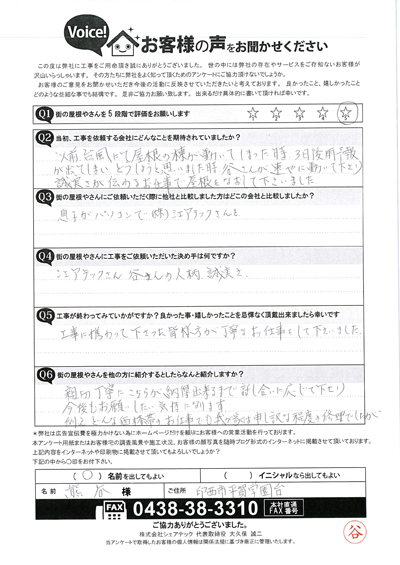 Voice!
お客様の声をお聞かせください
この度は弊社に工事をご用命頂き誠にありがとうございました。世の中には弊社の存在やサービスをご存知ないお客様が
沢山いらっしゃいます。その方たちに弊社をよく知って頂くためのアンケートにご協力頂けないでしょうか。
お客様のご意見をお聞かせいただき今後の活動に反映させていただきたいと考えております。良かったこと、嬉しかったこと
どのような些細な事でも結構です。是非ご協力お願い致します。出来るだけ具体的に書いて頂ければ幸いです。
Q1 街の屋根やさんを5段階で評価をお願いします
Q2 当初、工事を依頼する会社にどんなことを期待されていましたか?
台風にて屋根の棟が動いてしまった時、3日後雨予報
が出てしまい どうしようと思いました時 谷さんが速やに動いて下さり
誠実さが伝わるお仕事で屋根をなおして下さいました
Q3 街の屋根やさんにご依頼いただく際に他社と比較しました方はどこの会社と比較しましたか?
息子がパソコンで(株)シェアテックさんを
Q4 街の屋根やさんに工事をご依頼いただいた決め手は何ですか?
シェアテックさん 谷さんの人柄、誠実さ
Q5 工事が終わってみていかがですか?良かった事・嬉しかったことを忌憚なく頂戴出来ましたら幸いです
工事に携わって下さった皆様方が丁寧なお仕事をして下さいました。
Q6 街の屋根やさんを他の方に紹介するとしたらなんと紹介しますか?
親切丁寧にこちらが納得出来るまで話し合いに応じて下さり
今後もお願いしたい気持になります
*弊社は広告宣伝費を極力かけない為にホームページだけを頼りにお客様への営業活動を行っております。
本アンケート用紙またはお客様宅の調査風景や施工状況、お客様の顔写真を随時ブログ形式のインターネットに掲載させて頂いております。
上記内容をインターネットや印刷物に掲載させて頂いてもよろしいでしょうか?
下記の中から〇印をお付下さい。
(〇)名前を出してもよい ( )イニシャルなら出してもよい
お名前 熊谷 様 ご住所 印西市平賀学園台
FAX 0438-38-3310 本社直通 FAX番号
ご協力ありがとうございました。
株式会社シェアテック 代表取締役 大久保 誠二
当アンケートで取得したお客様の個人情報は関係法規に基づき厳正に管理いたします。
谷